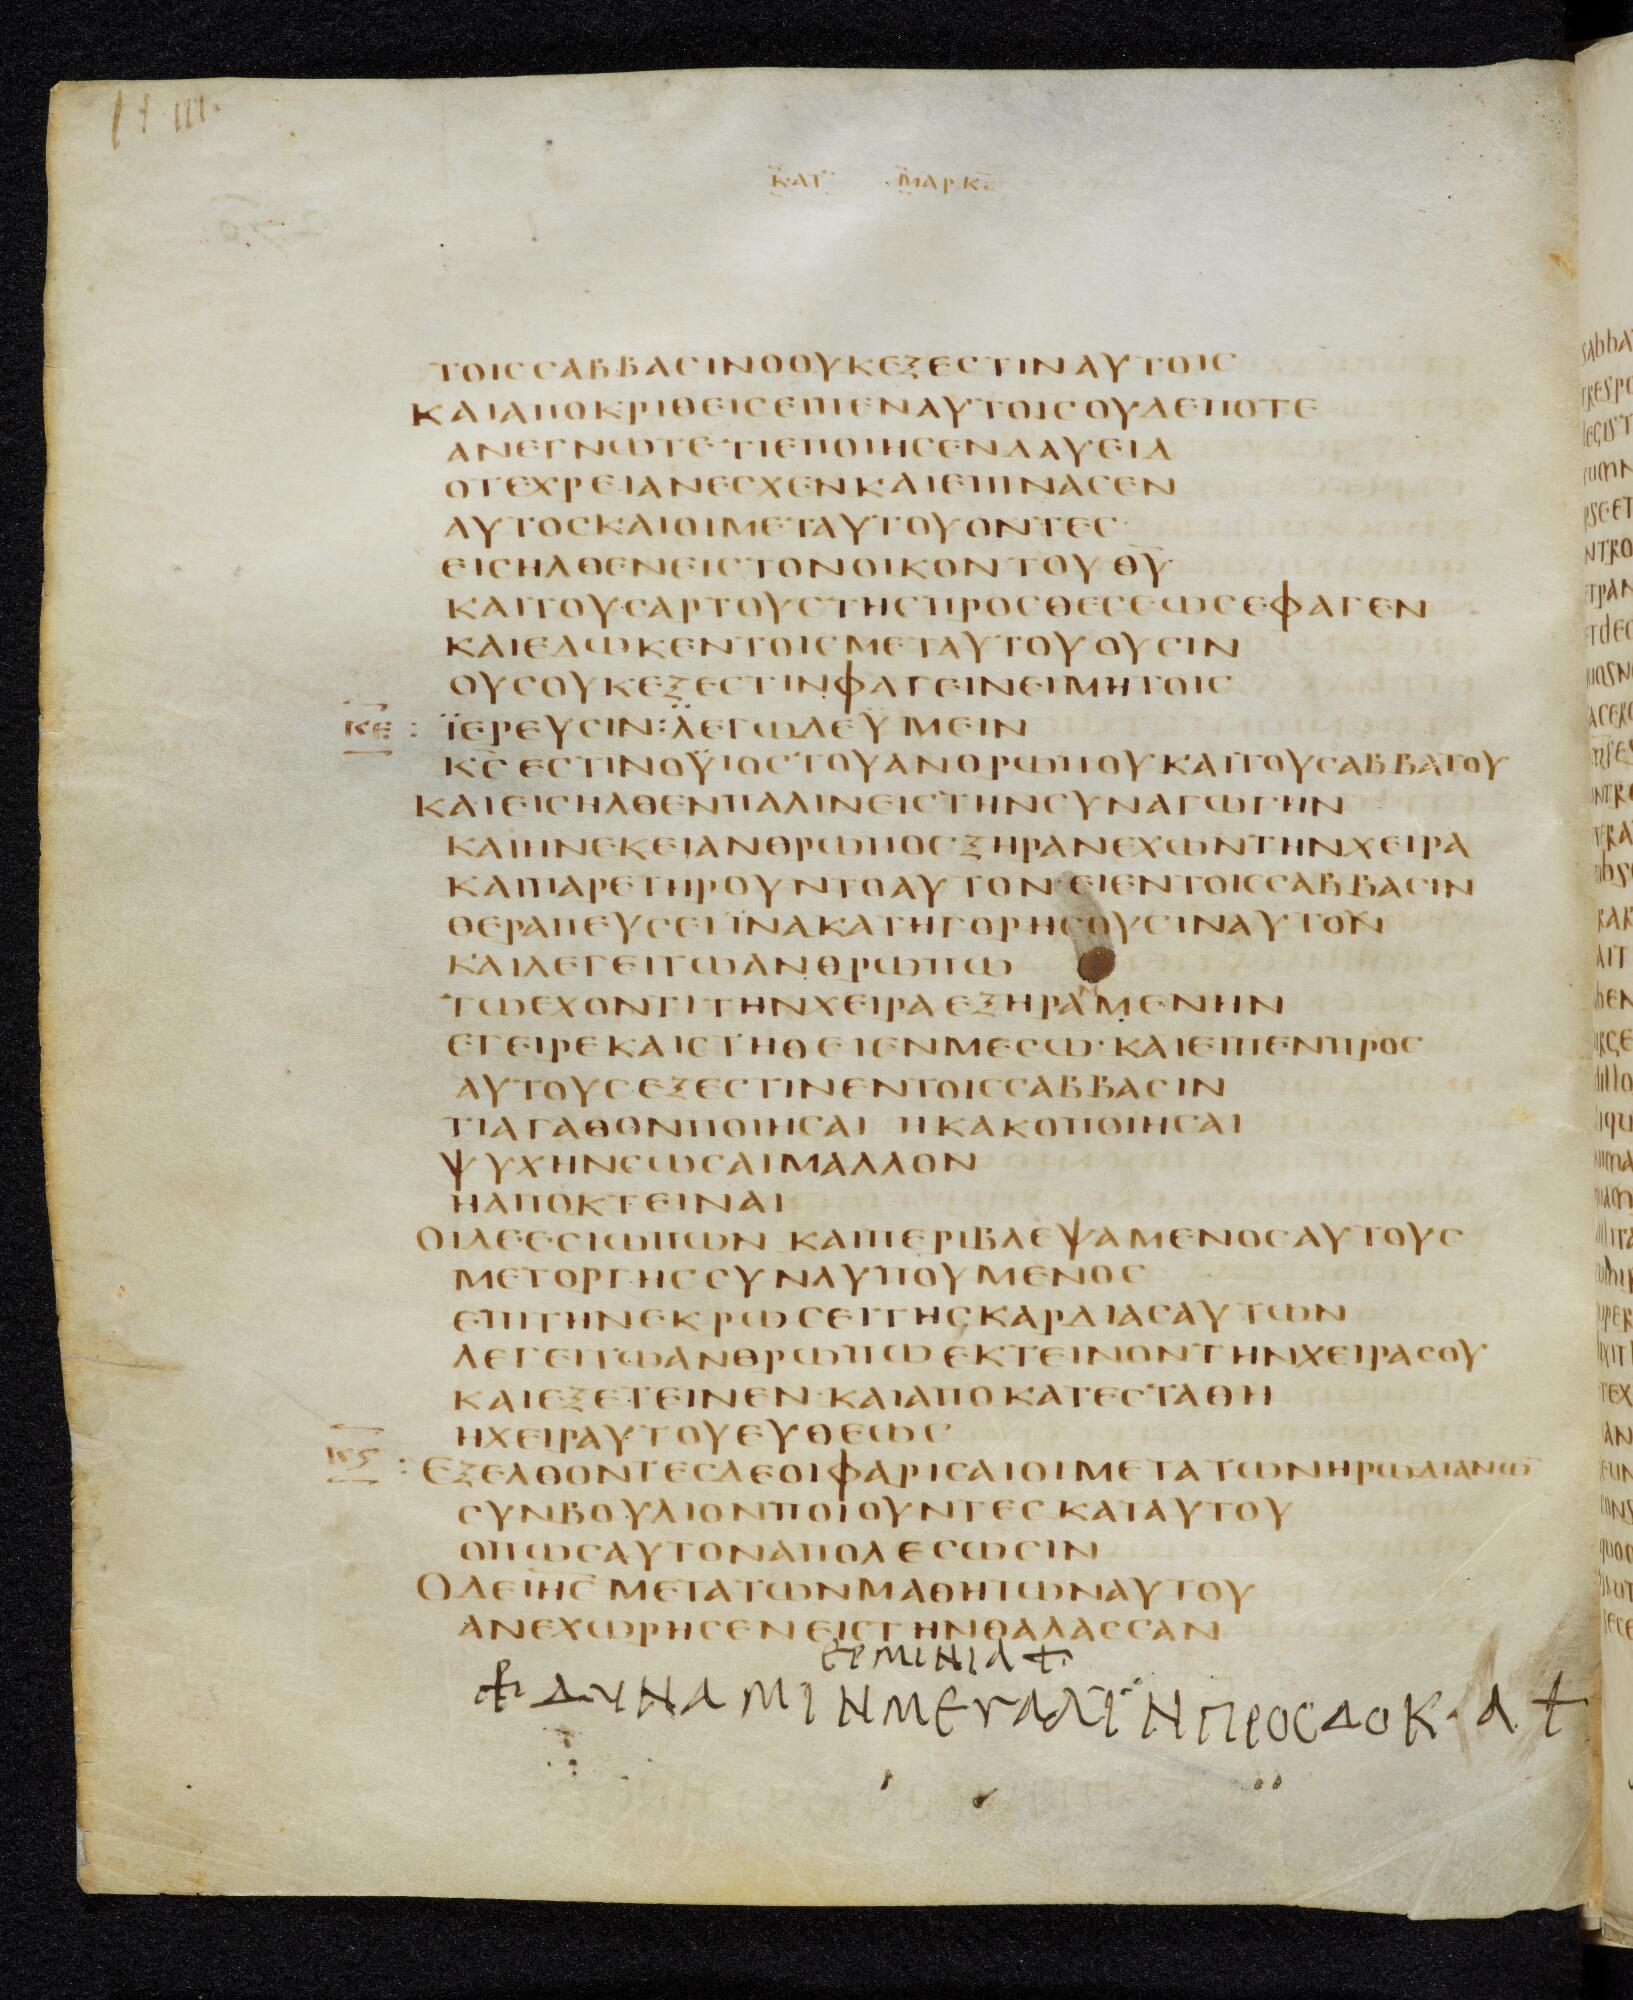 ΚΑΤ ΜΑΡΚΟ̅
ΤΟΙϹϹΑΒΒΑϹΙΝΟΟΥΚΕΞΕϹΤΙΝΑΥΤΟΙϹ
ΚΑΙΑΠΟΚΡΙΘΕΙϹΕΙΠΕΝΑΥΤΟΙϹΟΥΔΕΠΟΤΕ
ΑΝΕΓΝΩΤΕ ΤΙΕΠΟΙΗϹΕΝΔΑΥΕΙΔ
ΟΤΕΧΡΕΙΑΝΕϹΧΕΝΚΑΙΕΠΙΝΑϹΕΝ
ΑΥΤΟϹΚΑΙΟΙΜΕΤΑΥΤΟΥΟΝΤΕϹ
ΕΙϹΗΛΘΕΝΕΙϹΤΟΝΟΙΚΟΝΤΟΥΘ̅Υ̅
ΚΑΙΤΟΥϹΑΡΤΟΥϹΤΗϹΠΡΟϹΘΕϹΕΩϹΕΦΑΓΕΝ
ΚΑΙΕΔΩΚΕΝΤΟΙϹΜΕΤΑΥΤΟΥΟΥϹΙΝ
ΟΥϹΟΥΚΕΞΕϹΤΙΝΦΑΓΕΙΝΕΙΜΗΤΟΙϹ
Κ̅Ε̅ : ΪΕΡΕΥϹΙΝ:ΛΕΓΩΔΕΫΜΕΙΝ
Κ̅Ϲ̅ΕϹΤΙΝΟΫΙΟϹΤΟΥΑΝΘΡΩΠΟΥΚΑΙΤΟΥϹΑΒΒΑΤΟΥ
ΚΑΙΕΙϹΗΛΘΕΝΠΑΛΙΝΕΙϹΤΗΝϹΥΝΑΓΩΓΗΝ
ΚΑΙΗΝΕΚΕΙΑΝΘΡΩΠΟϹΞΗΡΑΝΕΧΩΝΤΗΝΧΕΙΡΑ
ΚΑΙΠΑΡΕΤΗΡΟΥΝΤΟΑΥΤΟΝ·ΕΙΕΝΤΟΙϹϹΑΒΒΑϹΙΝ
ΘΕΡΑΠΕΥϹΕΙΪΝΑΚΑΤΗΓΟΡΗϹΟΥϹΙΝΑΥΤΟΝ
ΚΑΙΛΕΓΕΙΤΩΑΝΘΡΩΠΩ
ΤΩΕΧΟΝΤΙΤΗΝΧΕΙΡΑΕΞΗΡΑΜΜΕΝΗΝ
ΕΓΕΙΡΕΚΑΙϹΤΗΘΕΙΕΝΜΕϹΩ·ΚΑΙΕΙΠΕΝΠΡΟϹ
ΑΥΤΟΥϹΕΞΕϹΤΙΝΕΝΤΟΙϹϹΑΒΒΑϹΙΝ
ΤΙΑΓΑΘΟΝΠΟΙΗϹΑΙ ΗΚΑΚΟΠΟΙΗϹΑΙ
ΨΥΧΗΝϹΩϹΑΙΜΑΛΛΟΝ
ΗΑΠΟΚΤΕΙΝΑΙ
ΟΙΔΕΕϹΙΩΠΩΝ ΚΑΙΠΕΡΙΒΛΕΨΑΜΕΝΟϹΑΥΤΟΥϹ
ΜΕΤΟΡΓΗϹϹΥΝΛΥΠΟΥΜΕΝΟϹ
ΕΠΙΤΗΝΕΚΡΩϹΕΙΤΗϹΚΑΡΔΙΑϹΑΥΤΩΝ
ΛΕΓΕΙΤΩΑΝΘΡΩΠΩΕΚΤΕΙΝΟΝΤΗΝΧΕΙΡΑϹΟΥ
ΚΑΙΕΞΕΤΕΙΝΕΝ·ΚΑΙΑΠΟΚΑΤΕϹΤΑΘΗ
ΗΧΕΙΡΑΥΤΟΥΕΥΘΕΩϹ
Κ̅Ϛ̅ : ΕΞΕΛΘΟΝΤΕϹΔΕΟΙΦΑΡΙϹΑΙΟΙΜΕΤΑΤΩΝΗΡΩΔΙΑΝΩ̅
ϹΥΝΒΟΥΛΙΟΝΠΟΙΟΥΝΤΕϹΚΑΤΑΥΤΟΥ
ΟΠΩϹΑΥΤΟΝΑΠΟΛΕϹΩϹΙΝ
ΟΔΕΙ̅Η̅Ϲ̅ΜΕΤΑΤΩΝΜΑΘΗΤΩΝΑΥΤΟΥ
ΑΝΕΧΩΡΗϹΕΝΕΙϹΤΗΝΘΑΛΑϹϹΑΝ
ΕΡΜΙΝΙΑ +
ΠΡΟϹΔΟΚΑ +